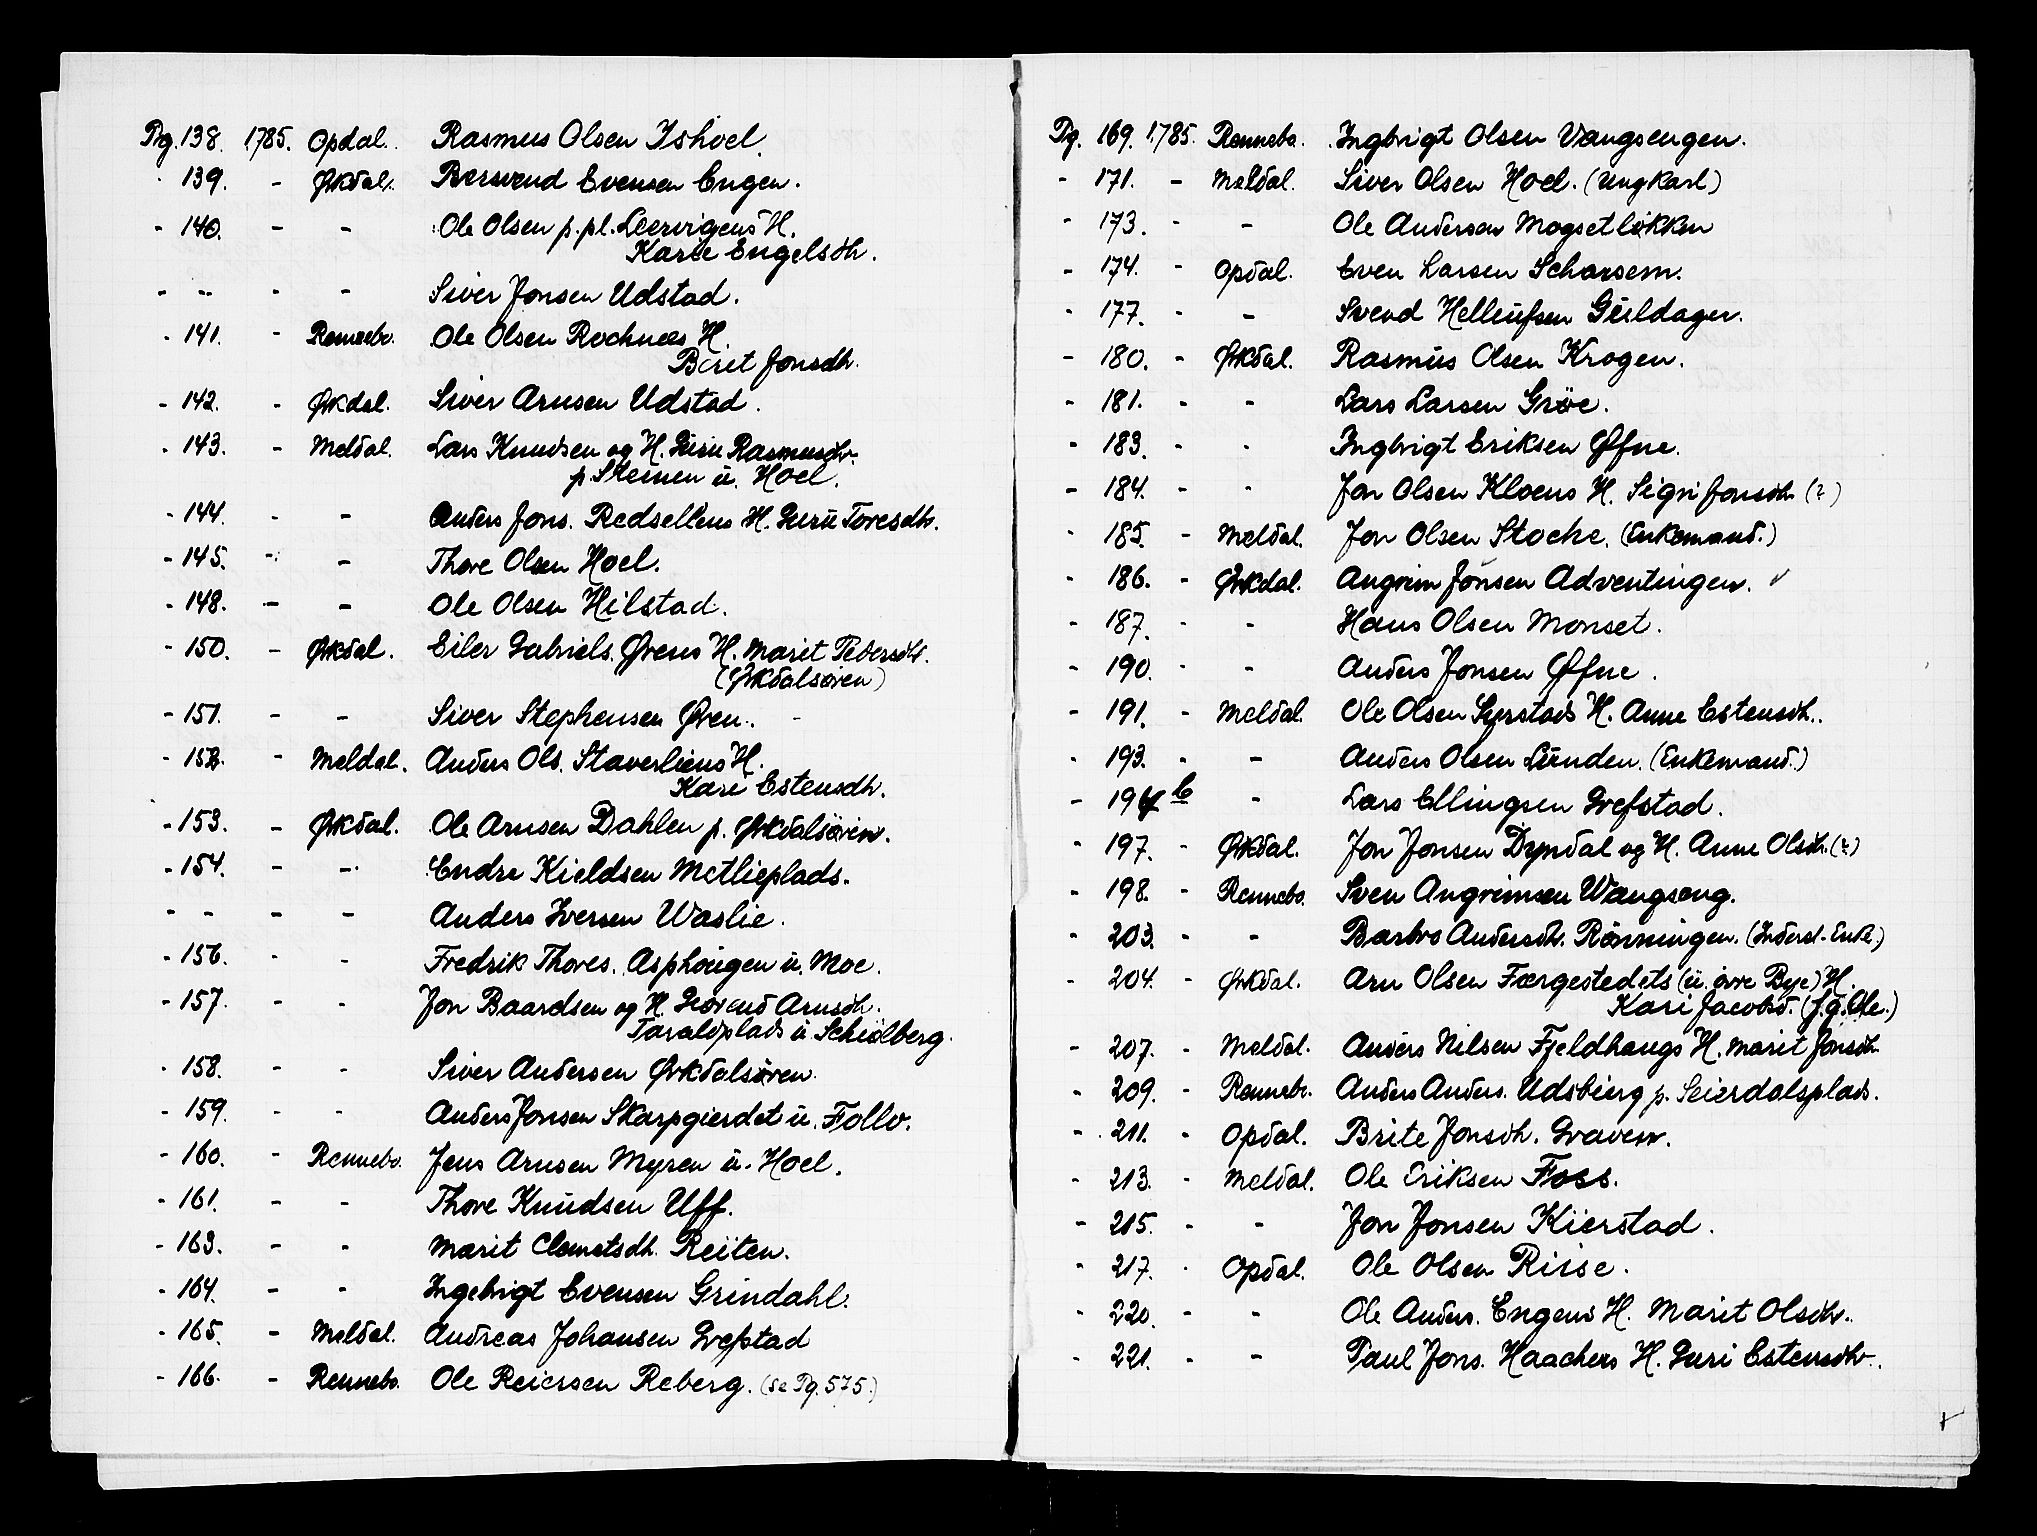 Pg. 138. 1785. Opdal. Rasmus Olsen Ishoel.
139. - Ørkdal. Bersvend Evensen Engen.
- 140. - - Ole Olsen p. pl. Leervigens H.
Karie Engelsdh.
- - - - Siver Jonsen Udstad.
- 141. - Rennebo. Ole Olsen Rochnees H.
Berit Jonsdh.
- 142. - Ørkdal. Siver Arnsen Udstad.
- 143. - Meldal. Lars Knudsen og H. Guru Rasmusdh.
p. Steinen ū. Hoel.
- 144. - - Anders Jons. Redsellens H. Guru Toresdh.
- 145. - - Thore Olsen Hoel.
- 148. - - Ole Olsen Hilstad.
- 150. - Ørkdal. Eiler Gabriels. Ørens H. Marit Pedersdh.
(Ørkdalsøren)
- 151. - - Siver Stephensen Øren. -
- 152. - Meldal. Anders Ols. Staverliens H.
Kari Estensdh.
- 153. - Ørkdal. Ole Arnsen Dahlen p. Ørkdalsøren.
- 154. - - Endre Kieldsen Metlieplads.
- - - - Anders Iversen Waslie.
- 156. - - Fredrik Thores. Asphougen ū. Moe.
- 157. - - Jon Baardsen og H. Arnsdh.
Taraldplads ū. Schiølberg.
- 158. - - Siver Andersen Ørkdalsøren.
- 159. - - Anders Jonsen Skarpgierdet ū. Follo.
- 160. - Rennebo. Jens Arnsen Myren ū. Hoel.
- 161. - - Thore Knudsen Uff.
- 163. - - Marit Clemetsdh. Reiten.
- 164. - - Ingebrigt Evensen Grindahl.
- 165. - Meldal. Andreas Johansen Grefstad
- 166. - Rennebo. Ole Reiersen Reberg. (se Pg. 575.)
Pg. 169. 1785. Rennebo. Ingbrigt Olsen Vangsengen.
- 171. - Meldal. Siver Olsen Hoel. (Ungkarl)
- 173. - - Ole Andersen Mogsetløkken
- 174. - Opdal. Even Larsen Scharsem.
- 177. - - Svend Helleufsen Guldager.
- 180. - Ørkdal. Rasmus Olsen Krogen.
- 181. - - Lars Larsen Grøe.
- 183. - - Ingbrigt Eriksen Øfne.
- 184. - - Jon Olsen Kloens H. Sigri Jonsdh (?)
- 185. - Meldal. Jon Olsen Stocke. (Enkemand.)
- 186. - Ørkdal. Angrim Jonsen Adventingen. ✓
- 187. - - Hans Olsen Monset.
- 190. - - Anders Jonsen Øfne.
- 191. - Meldal. Ole Olsen Syrstads H. Anne Estensdh.
- 193. - - Anders Olsen Lunden. (Enkemand.)
- 194 b - Lars Ellingsen Grefstad.
- 197. - Ørkdal. Jon Jonsen Dyrdal og H. Anne Olsdh. (?)
- 198. - Rennebo. Sven Angrimsen Wangseng.
- 203. - - Barbro Andersdh. Rønningen. (Inderst-Enke.)
- 204. - Ørkdal. Arn Olsen Færgestedets (ū. øvre Bye) H.
Kari Jacobsd.
- 207. - Meldal. Anders Nilsen Fjeldhaugs H. Marit Jonsdh
- 209. - Rennebo. Anders Anders. Udsbierg p. Seierdalsplads.
- 211. - Opdal. Brite Jonsdh. Graven.
- 213. - Meldal. Ole Eriksen Foss.
- 215. - - Jon Jonsen Kierstad.
- 217. - Opdal. Ole Olsen Riise.
- 220. - - Ole Anders. Engens H. Marit Olsdh.
- 221. - - Paul Jons. Haachers H. Guri Estensdh.